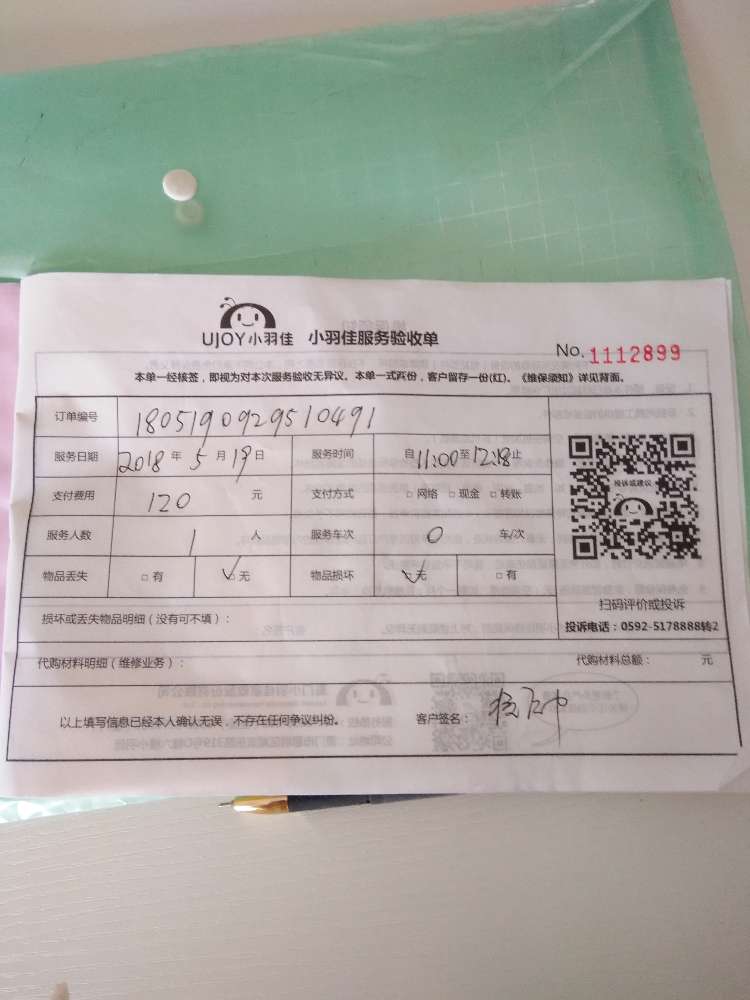 UJOY小羽佳 小羽佳服务验收单
No. 1112899
本单一经核签，即视为对本次服务验收无异议。本单一式两份，客户留存一份(红)。《维保须知》详见背面。
订单编号 1805190929510491
服务日期 2018年5月19日 服务时间 自11:00至12:18止
支付费用 120 元 支付方式 □网络 □现金 □转账
服务人数 1 人 服务车次 0 车/次
物品丢失 □有 ☑无 物品损坏 ☑无 □有
投诉或建议
扫码评价或投诉
损坏或丢失物品明细（没有可不填）：
投诉电话：0592-5178888转2
代购材料明细（维修业务）： 代购材料总额： 元
以上填写信息已经本人确认无误，不存在任何争议纠纷。 客户签名：